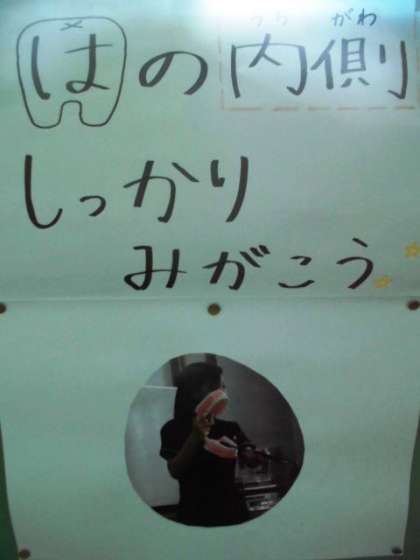 はの内側
うち がわ
しっかり
みがこう